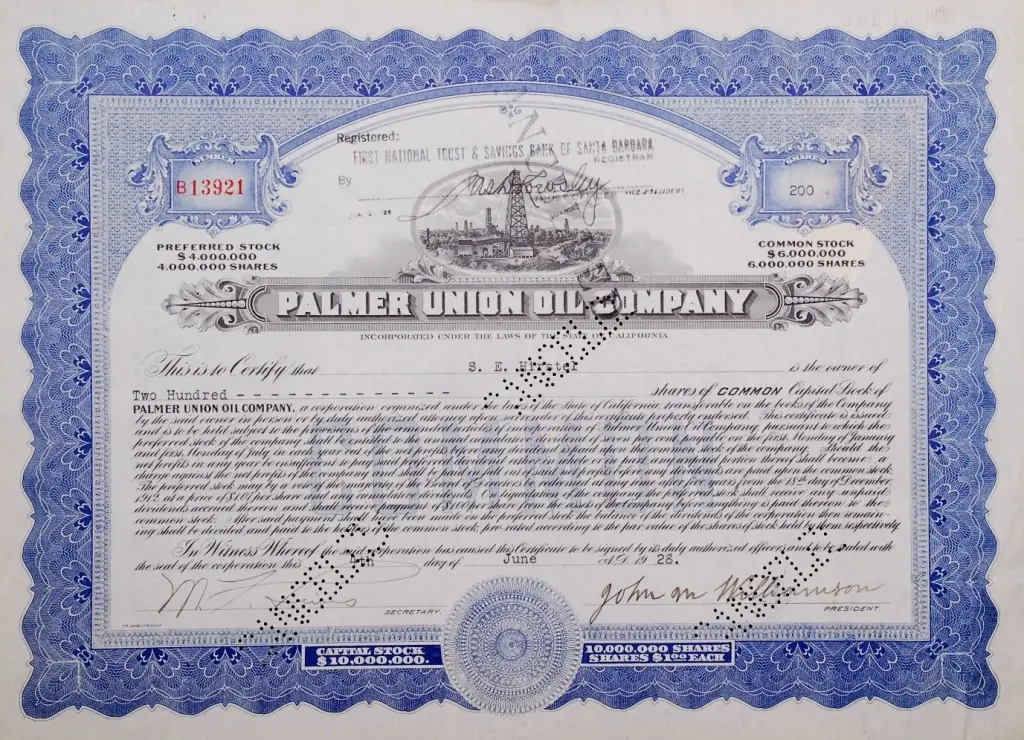 Registered:
FIRST NATIONAL TRUST & SAVINGS BANK OF SANTA BARBARA
REGISTRAR
By
VICE-PRESIDENT
NUMBER
B13921
SHARES
200
PREFERRED STOCK
$4.000.000
4.000.000 SHARES
COMMON STOCK
$6.000.000
6.000.000 SHARES
PALMER UNION OIL COMPANY
INCORPORATED UNDER THE LAWS OF THE STATE OF CALIFORNIA
This is to Certify that S. E. is the owner of
Two Hundred - - - - - - - - - - - - - - shares of COMMON Capital Stock of
PALMER UNION OIL COMPANY, a corporation organized under the laws of the State of California, transferable on the books of the Company
by the said owner in person or by duly authorized attorney upon surrender of this certificate properly endorsed. This certificate is issued
and is to be held subject to the provisions of the amended articles of incorporation of Palmer Union Oil Company, pursuant to which the
preferred stock of the company shall be entitled to the annual cumulative dividend of seven per cent. payable on the first Monday of January
and first Monday of July in each year out of the net profits before any dividend is paid upon the common stock of the company. Should the
net profits in any year be insufficient to pay said preferred dividend either in whole or in part any unpaid portion thereof shall become a
charge against the net profits of the company and shall be paid in full out of said net profit before any dividends are paid upon the common stock.
The preferred stock may by vote of the majority of the Board of Directors be redeemed at any time after five years from the 18th day of December,
1912, at a price of $1.07 per share and any cumulative dividends. Upon liquidation of the company the preferred stock shall receive any unpaid
dividends accrued thereon and shall receive payment of $1.00 per share from the assets of the Company before anything is paid thereon to the
common stock. After said payment shall have been made upon the preferred stock the balance of the dividend of the corporation then remain-
ing shall be divided and paid to the holders of the common stock, pro-rated according to the par value of the shares of stock held by them respectively.
In Witness Whereof the said corporation has caused this Certificate to be signed by its duly authorized officers and to be sealed with
the seal of the corporation this 4th day of June A.D. 1928.
SECRETARY.
John M Williamson
PRESIDENT.
CAPITAL STOCK
$10,000,000.
10,000,000 SHARES
SHARES $1.00 EACH